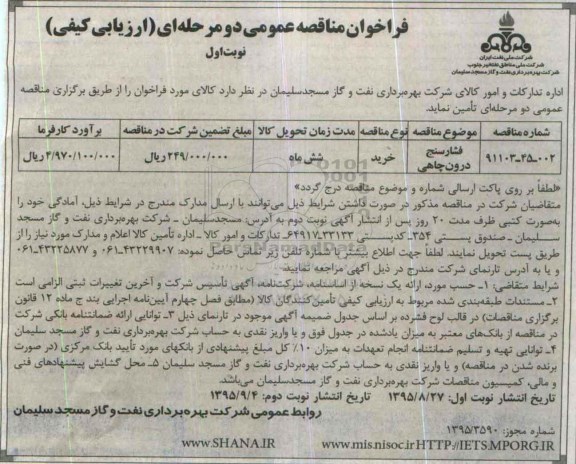 فراخوان مناقصه عمومی دو مرحله‌ای (ارزیابی کیفی)
نوبت اول
شرکت ملی نفت ایران
شرکت ملی مناطق نفتخیز جنوب
شرکت بهره‌برداری نفت و گاز مسجدسلیمان
اداره تدارکات و امور کالای شرکت بهره‌برداری نفت و گاز مسجدسلیمان در نظر دارد کالای مورد فراخوان را از طریق برگزاری مناقصه
عمومی دو مرحله‌ای تأمین نماید.
شماره مناقصه موضوع مناقصه نوع مناقصه مدت زمان تحویل کالا مبلغ تضمین شرکت در مناقصه برآورد کارفرما
۰۰۲-۳۵-۹۱۱۰۳ فشارسنج درون‌چاهی خرید شش ماه ۲۴۹/۰۰۰/۰۰۰ ریال ۴/۹۷۰/۱۰۰/۰۰۰ ریال
«لطفاً بر روی پاکت ارسالی شماره و موضوع مناقصه درج گردد»
متقاضیان شرکت در مناقصه مذکور در صورت داشتن شرایط ذیل می‌توانند با ارسال مدارک مندرج در شرایط ذیل، آمادگی خود را
به‌صورت کتبی ظرف مدت ۲۰ روز پس از انتشار آگهی نوبت دوم به آدرس: مسجدسلیمان ـ شرکت بهره‌برداری نفت و گاز مسجد
سلیمان ـ صندوق پستی ۳۵۴ـ کدپستی ۳۳۱۳۳ـ۶۴۹۱۷ـ تدارکات و امور کالا ـ اداره تأمین کالا اعلام و مدارک مورد نیاز را از
طریق پست تحویل نمایند. لطفاً جهت اطلاع بیشتر با شماره تلفن زیر تماس حاصل نموده: ۴۳۲۲۹۹۰۷ـ۰۶۱ و ۴۳۲۲۵۸۷۷ـ۰۶۱
و یا به آدرس تارنمای شرکت مندرج در ذیل آگهی مراجعه نمایید.
شرایط متقاضی: ۱ـ حسب مورد، ارائه یک نسخه از اساسنامه، شرکت‌نامه، آگهی تأسیس شرکت و آخرین تغییرات ثبتی الزامی است
۲ـ مستندات طبقه‌بندی شده مربوط به ارزیابی کیفی تأمین‌کنندگان کالا (مطابق فصل چهارم آیین‌نامه اجرایی بند ج ماده ۱۲ قانون
برگزاری مناقصات) در قالب لوح فشرده بر اساس جدول ضمیمه آگهی موجود در تارنمای ذیل ۳ـ توانایی ارائه ضمانتنامه بانکی شرکت
در مناقصه از بانک‌های معتبر به میزان یادشده در جدول فوق و یا واریز نقدی به حساب شرکت بهره‌برداری نفت و گاز مسجد سلیمان
۴ـ توانایی تهیه و تسلیم ضمانتنامه انجام تعهدات به میزان ۱۰٪ کل مبلغ پیشنهادی از بانکهای مورد تأیید بانک مرکزی (در صورت
برنده شدن در مناقصه) و یا واریز نقدی به حساب شرکت بهره‌برداری نفت و گاز مسجد سلیمان ۵ـ محل گشایش پیشنهادهای فنی
و مالی، کمیسیون مناقصات شرکت بهره‌برداری نفت و گاز مسجدسلیمان می‌باشد.
تاریخ انتشار نوبت اول: ۱۳۹۵/۸/۲۷ تاریخ انتشار نوبت دوم: ۱۳۹۵/۹/۴
روابط عمومی شرکت بهره‌برداری نفت و گاز مسجد سلیمان
شماره مجوز: ۱۳۹۵/۳۵۹۰
www.SHANA.IR www.mis.nisoc.ir HTTP://IETS.MPORG.IR